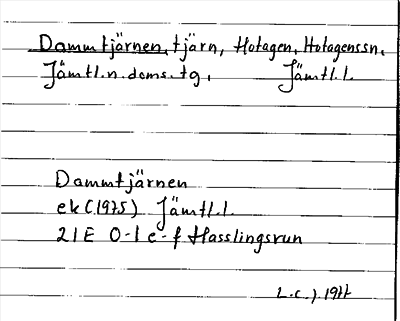 Dammtjärnen, tjärn, Hotagen, Hotagenssn,
Jämtl.n.doms.tg, Jämtl.l.
Dammtjärnen
ek (1975) Jämtl.l.
21E 0-1 e-f Hasslingsrun
L.C.J. 1977